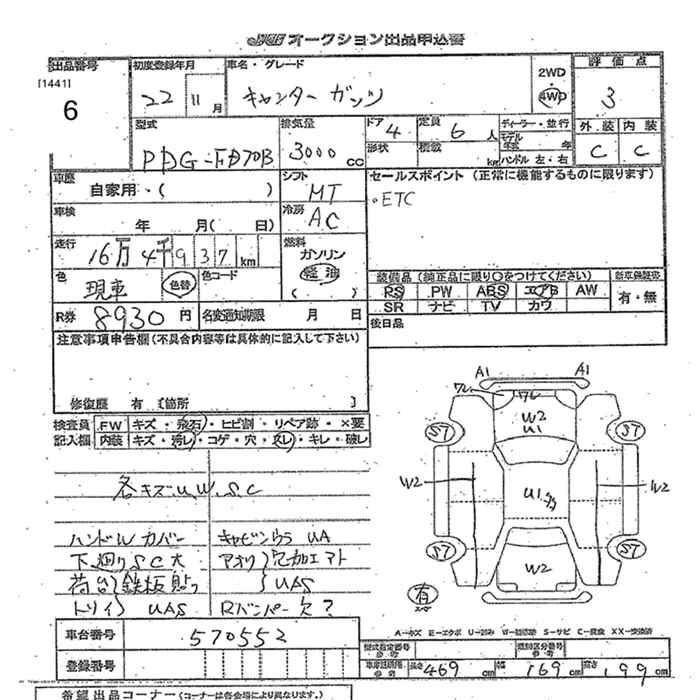 JU オークション出品申込書
出品番号 初度登録年月 車名・グレード 評価点
[1441] 6 22 11月 キャンター ガッツ 2WD 4WD 3
型式 排気量 ドア 4 定員 6人 ディーラー・並行 外装 内装
PDG-FD70B 3000cc 形状 積載 km モデル年式 年 ハンドル 左・右 C C
車歴 自家用・( ) シフト MT セールスポイント(正常に機能するものに限ります)
車検 年 月( 日) 冷房 AC ・ETC
走行 16万4千937km 燃料 ガソリン 軽油 ( )
色 現車 色替 色コード 装備品(純正品に限り○をつけてください) 新車保証書
RS PW ABS エアB AW 有・無
SR ナビ TV カワ
R券 8930円 名変通知期限 月 日 後日品
注意事項申告欄(不具合内容等は具体的に記入して下さい)
修復歴 有 [箇所 ]
検査員記入欄 FW キズ・飛石・ヒビ割・リペア跡・×要
内装 キズ・汚レ・コゲ・穴・スレ・キレ・破レ
A1 A1
ワレ ワレ
W2
U1
S7 S7
各キズU.W.S.C
W2 U1 W2
ハンドルカバー キャビンウラ UA
下廻りSC大 アオリ 穴加工アト
S7 S7
荷台 鉄板貼り UAS
W2
トリイ UAS Rバンパー欠?
有
スペア
A-キズ E-エクボ U-凹み W-補修跡 S-サビ C-腐食 XX-交換済
車台番号 570552
型式指定番号 類別区分番号
登録番号 長さ 469cm 幅 169cm 高さ 199cm
希望出品コーナー(コーナーは各会場により異なります。)